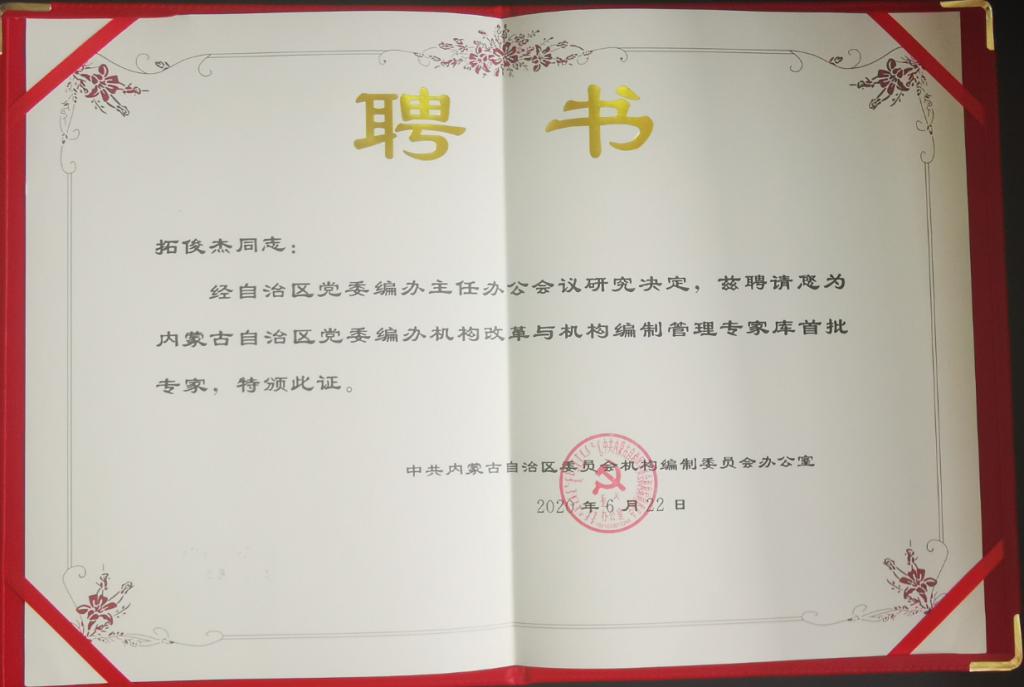 聘书
拓俊杰同志：
经自治区党委编办主任办公会议研究决定，兹聘请您为
内蒙古自治区党委编办机构改革与机构编制管理专家库首批
专家，特颁此证。
中共内蒙古自治区委员会机构编制委员会办公室
2020年6月22日